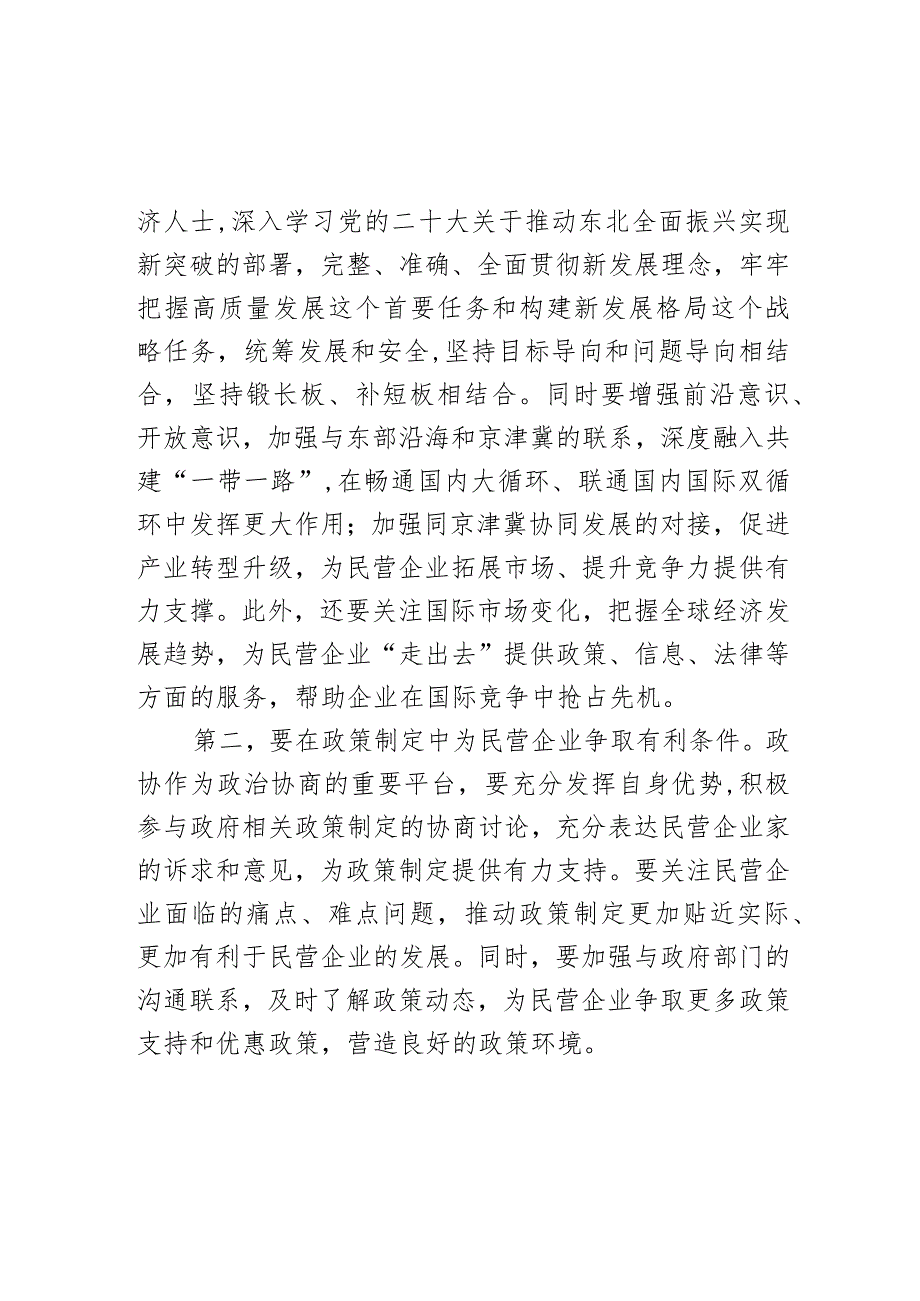 济人士,深入学习党的二十大关于推动东北全面振兴实现
新突破的部署，完整、准确、全面贯彻新发展理念，牢牢
把握高质量发展这个首要任务和构建新发展格局这个战
略任务，统筹发展和安全,坚持目标导向和问题导向相结
合，坚持锻长板、补短板相结合。同时要增强前沿意识、
开放意识，加强与东部沿海和京津冀的联系，深度融入共
建“一带一路”,在畅通国内大循环、联通国内国际双循
环中发挥更大作用；加强同京津冀协同发展的对接，促进
产业转型升级，为民营企业拓展市场、提升竞争力提供有
力支撑。此外，还要关注国际市场变化，把握全球经济发
展趋势，为民营企业“走出去”提供政策、信息、法律等
方面的服务，帮助企业在国际竞争中抢占先机。
第二，要在政策制定中为民营企业争取有利条件。政
协作为政治协商的重要平台，要充分发挥自身优势,积极
参与政府相关政策制定的协商讨论，充分表达民营企业家
的诉求和意见，为政策制定提供有力支持。要关注民营企
业面临的痛点、难点问题，推动政策制定更加贴近实际、
更加有利于民营企业的发展。同时，要加强与政府部门的
沟通联系，及时了解政策动态，为民营企业争取更多政策
支持和优惠政策，营造良好的政策环境。